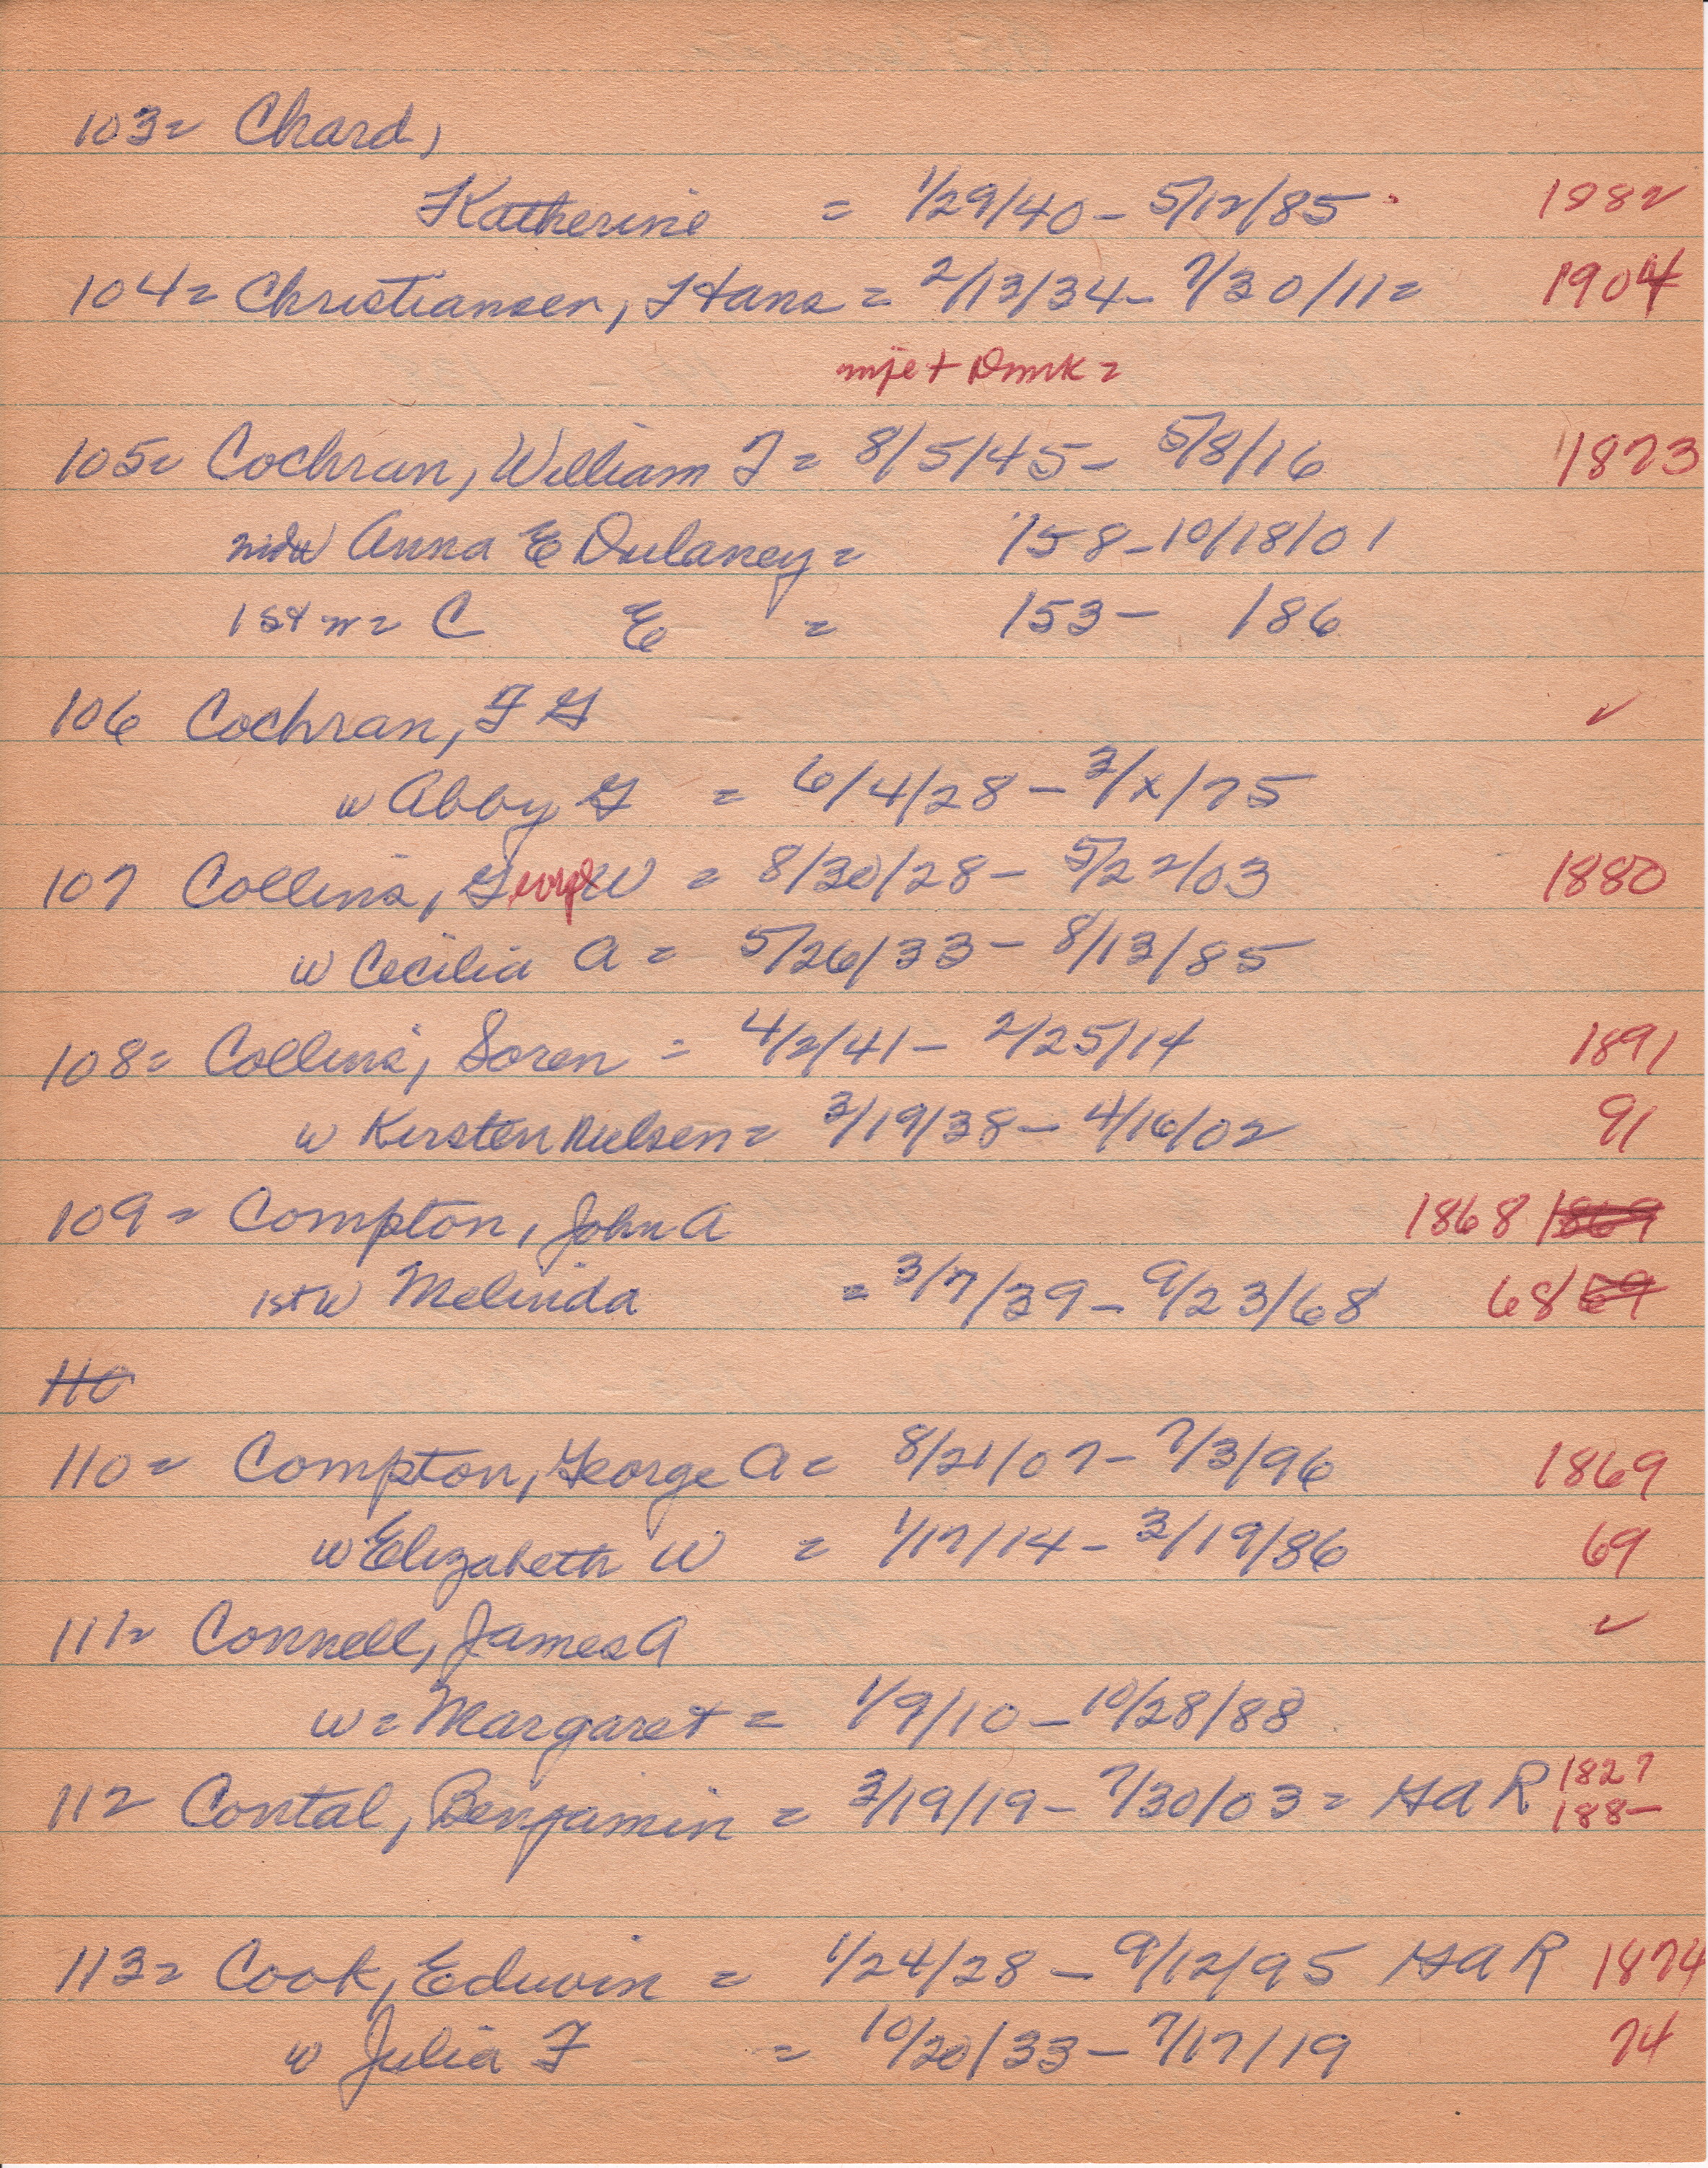 103= Chard,
Katherine = 1/29/40 - 5/12/85 1882
104= Christiansen, Hans = 2/13/34 - 7/30/11= 1904
mje + Dmrk =
105= Cochran, William F = 8/5/45 - 5/8/16 1873
2nd w Anna E Dulaney = /58 - 10/18/01
1st w = C E = /53 - /86
106 Cochran, F G ✓
w Abby G = 6/4/28 - 3/x/75
107 Collins, George W = 8/30/28 - 5/22/03 1880
w Cecilia A = 5/26/33 - 8/13/85
108= Collins, Soren = 4/2/41 - 2/25/14 1891
w Kirsten Nielsen = 3/19/38 - 4/16/02 91
109= Compton, John A 1868 1869
1st w Melinda = 3/7/39 - 9/23/68 68 69
110
110= Compton, George A = 8/21/07 - 7/3/96 1869
w Elizabeth W = 1/17/14 - 3/19/86 69
111= Connell, James A ✓
w = Margaret = 1/9/10 - 10/28/88
112 Contal, Benjamin = 3/19/19 - 7/30/03 = GAR 182?
188-
113= Cook, Edwin = 1/24/28 - 9/12/95 GAR 1874
w Julia F = 10/20/33 - 7/17/19 74